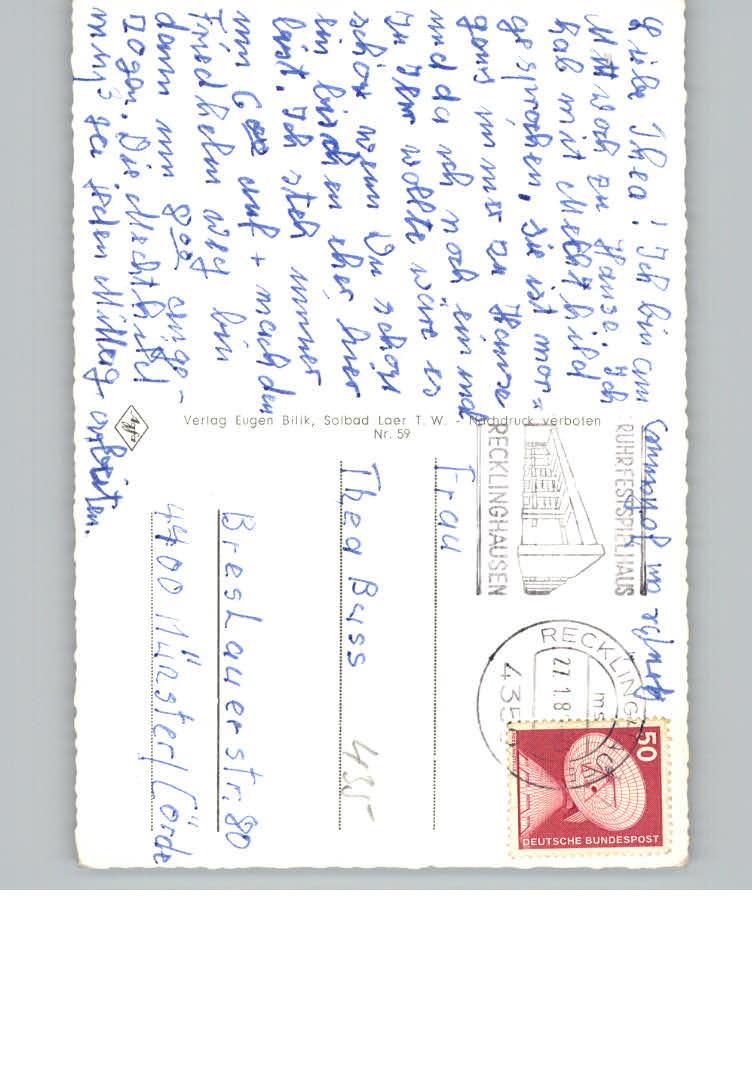 Liebe Thea! Ich bin am Sonnabend
Mittwoch zu Hause. Ich
hab mit Mechthild
gesprochen. Sie ist mor-
gens immer zu Hause
und da ich noch einmal
zu Ihr wollte wäre es
schön wenn Du schon
ein bischen eher hier
bist. Ich steh immer
um 6 00 auf + mach den
Friedhelm weg bin
dann um 8 00 ange-
zogen. Die Mechthild
muß ja jeden Mittag arbeiten.
Verlag Eugen Bilik, Solbad Laer T.W. - Nachdruck verboten
Nr. 59
Agfa
RUHRFESTSPIELHAUS
RECKLINGHAUSEN
RECKLINGH
27.1.8
435
50
DEUTSCHE BUNDESPOST
Frau
Thea Buss
Breslauerstr. 80
4400 Münster/Cörde